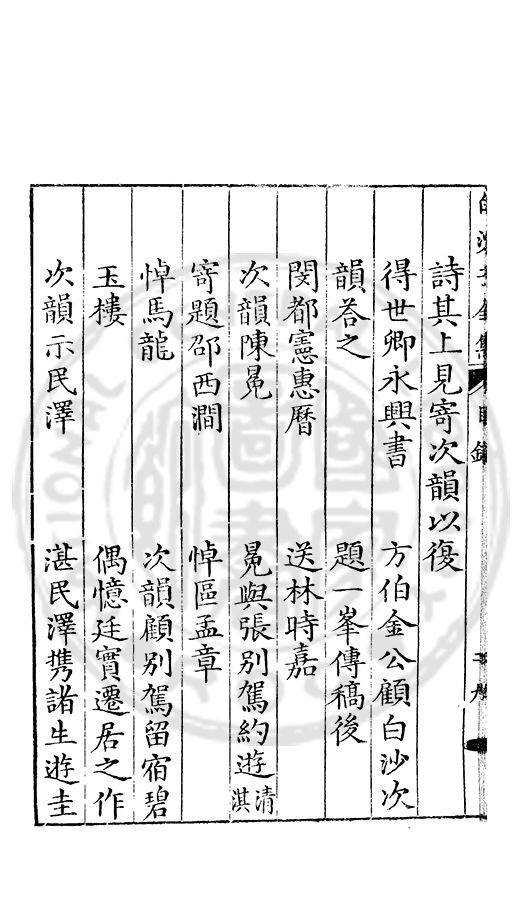 白沙子全集 目錄
詩其上見寄次韻以復
得世卿永興書 方伯金公顧白沙次
韻荅之 題一峯傳稿後
閔都憲惠曆 送林時嘉
次韻陳冕 冕與張別駕約遊清淇
寄題邵西澗 悼區孟章
悼馬龍 次韻顧別駕留宿碧
玉樓 偶憶廷實遷居之作
次韻示民澤 湛民澤携諸生遊圭